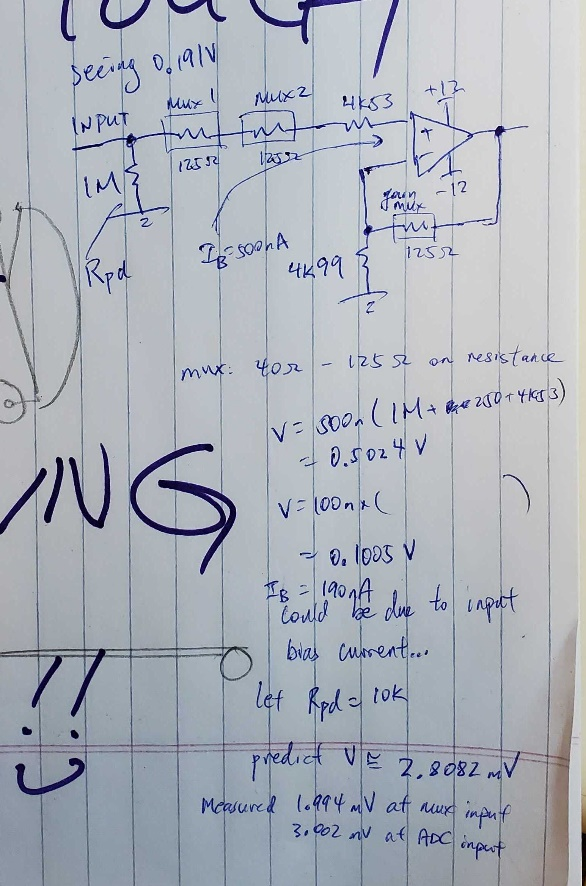 seeing 0.191V
INPUT
Mux 1
Mux 2
4K53
+12
125Ω
125Ω
+
-
-12
1M
2
Rpd
I_B=500nA
gain
mux
125Ω
4K99
2
mux: 40Ω - 125Ω on resistance
V = 500n ( 1M + 250 + 4K53)
= 0.5024 V
V = 100n x (
= 0.1005 V
I_B = 190nA
could be due to input
bias current...
let Rpd = 10K
predict V ≅ 2.8082 mV
Measured 1.994 mV at mux input
3.002 mV at ADC input
NG
!!